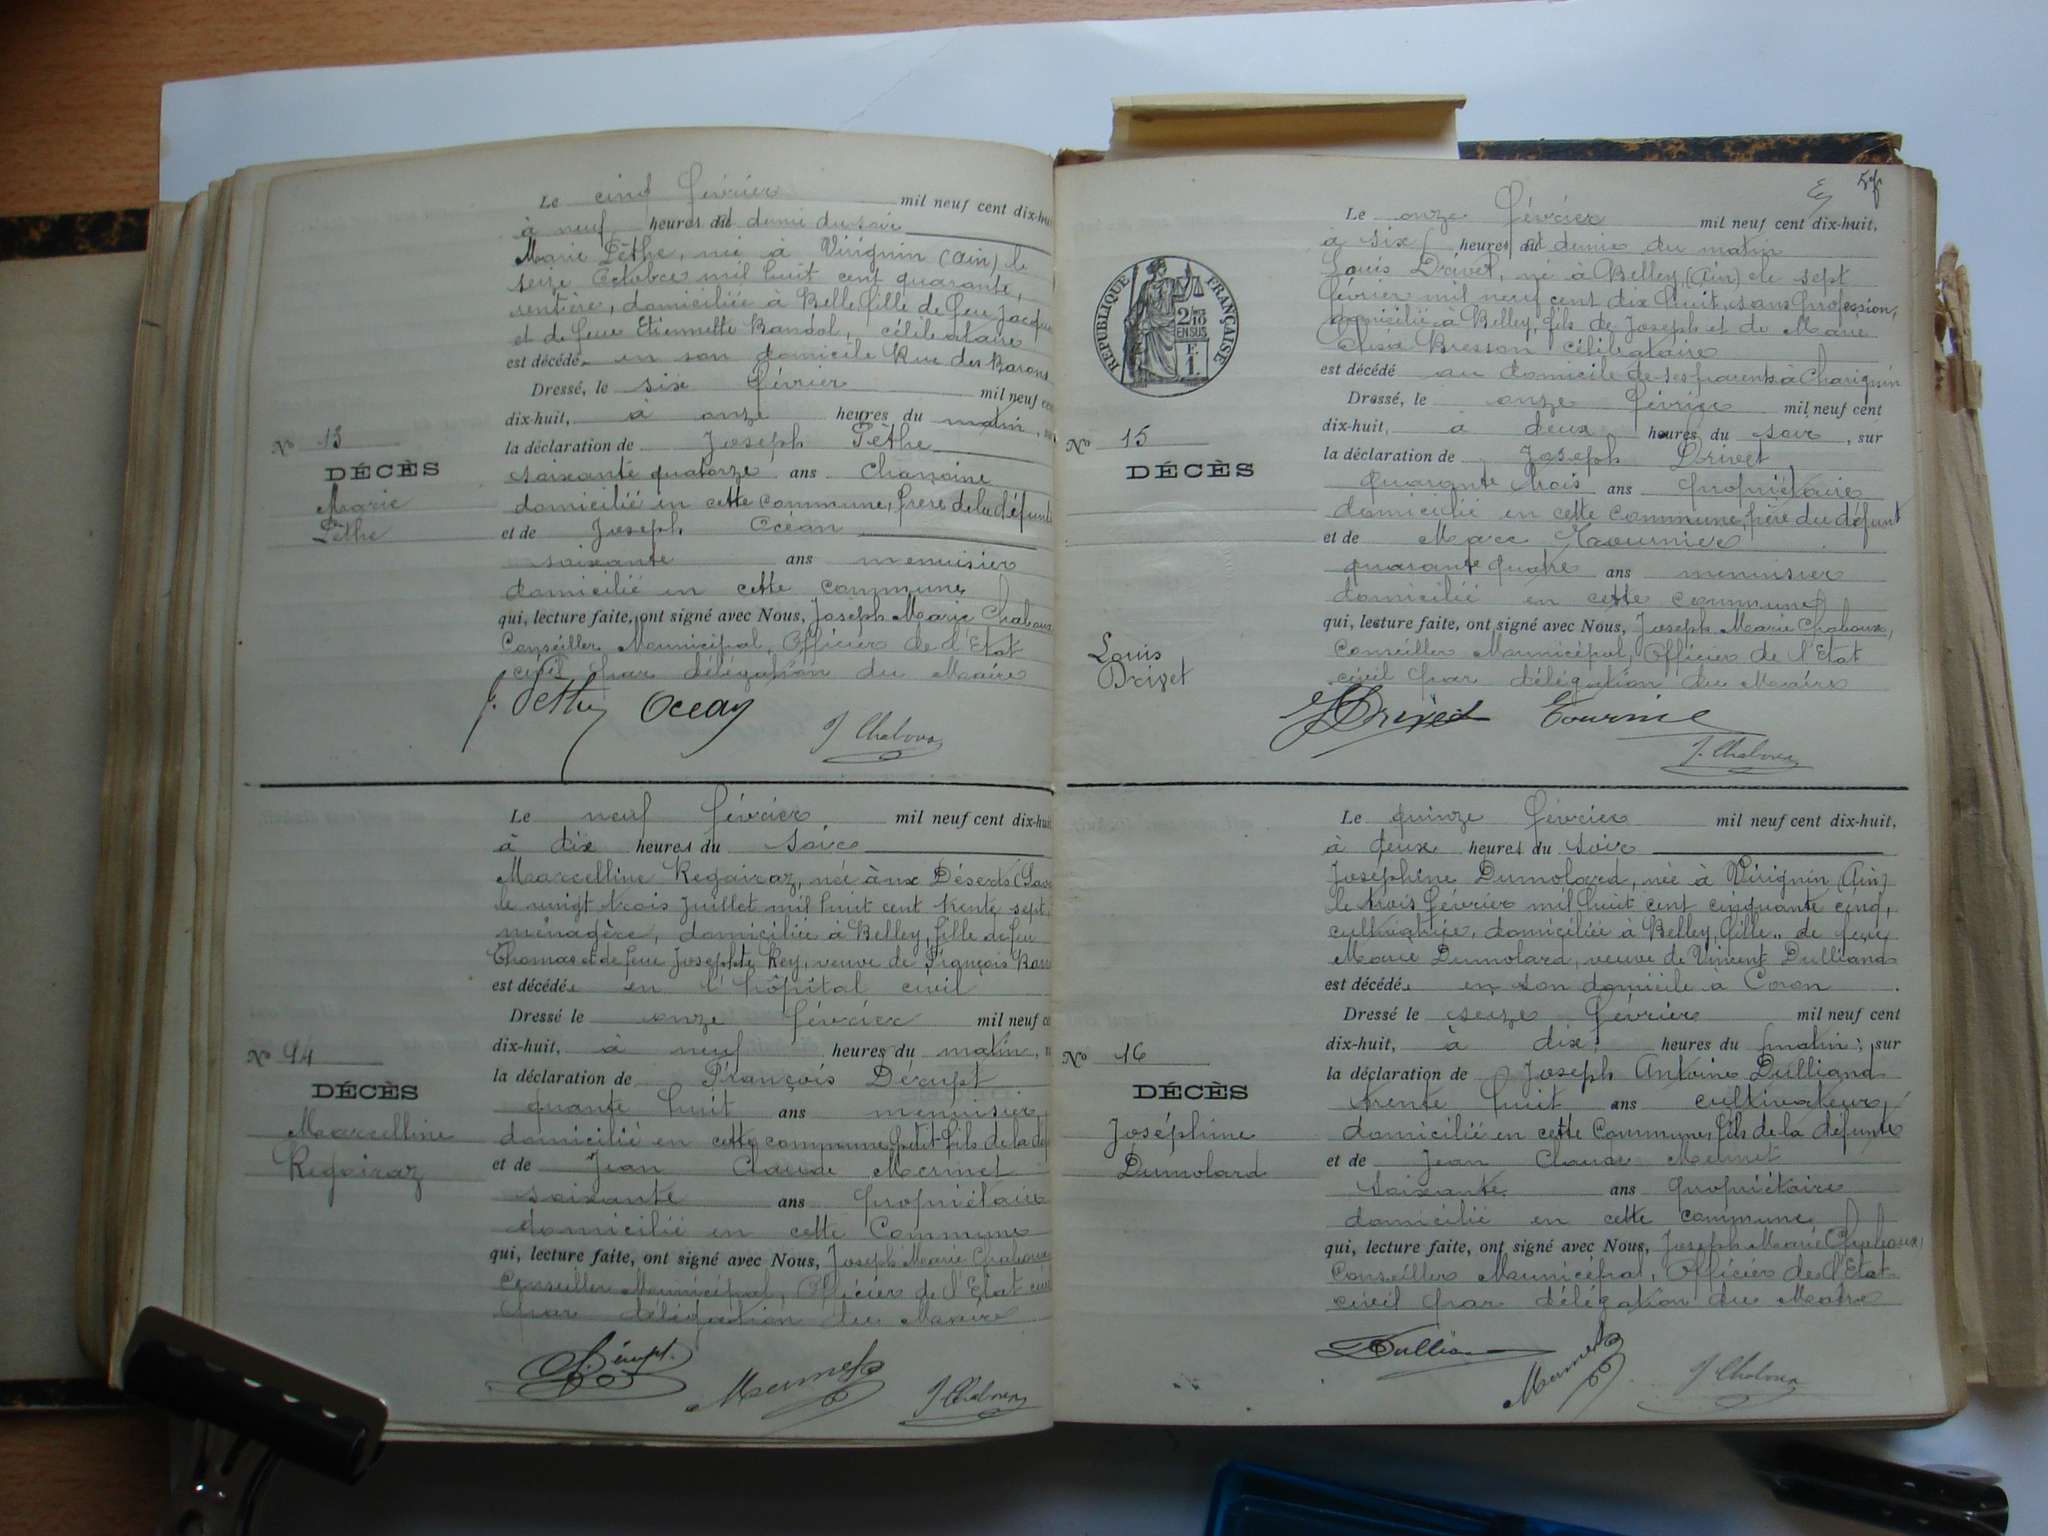 Le cinq février mil neuf cent dix-hu
à neuf heures et demie du soir
Marie Pèthe, née à Virignin (Ain) le
seize Octobre mil huit cent quarante,
rentière, domiciliée à Belle fille de feu Jacque
et de feue Etiennette célibataire
est décédée en son domicile Rue des Barons
Dressé, le six février mil neuf ce
dix-huit, à onze heures du matin
la déclaration de Joseph Pèthe
soixante quatorze ans Chanoine
domicilié en cette commune, frère de la défunte
et de Joseph Océan
soixante ans menuisier
domicilié en cette commune
qui, lecture faite, ont signé avec Nous, Joseph Marie Chaboux
Conseiller Municipal, Officier de l'Etat
civil par délégation du Maire
No 13
DÉCÈS
Marie
Pèthe
J. Pethe Ocean
J Chaboux
Le neuf février mil neuf cent dix-huit
à dix heures du soir
Marcelline Regairaz, née aux Déserts (Savo
le vingt trois juillet mil huit cent trente sept,
ménagère, domiciliée à Belley, fille de feu
Thomas et de feue Josephte Rey, veuve de François
est décédée en l'hôpital civil
Dressé le onze février mil neuf ce
dix-huit, à neuf heures du matin
la déclaration de François Décrupt
quante huit ans menuisier
domicilié en cette commune, petit-fils de la dé
et de Jean Claude Mermet
soixante ans propriétaire
domicilié en cette Commune
qui, lecture faite, ont signé avec Nous, Joseph Marie Chaboux
Conseiller Municipal, Officier de l'Etat civil
par délégation du Maire
No 14
DÉCÈS
Marcelline
Regairaz
Mermet
J Chaboux
Le onze février mil neuf cent dix-huit,
à six heures et demie du matin
Louis Drivet, né à Belley, (Ain) le sept
février mil neuf cent dix huit, sans profession,
domicilié à Belley, fils de Joseph et de Marie
Bresson célibataire
est décédé au domicile de ses parents à Charignin
Dressé, le onze février mil neuf cent
dix-huit, à deux heures du soir, sur
la déclaration de Joseph Drivet
quarante trois ans propriétaire
domicilié en cette commune, père du défunt
et de Marc Tournier
quarante quatre ans menuisier
domicilié en cette commune
qui, lecture faite, ont signé avec Nous, Joseph Marie Chaboux,
Conseiller Municipal, Officier de l'Etat
civil par délégation du Maire
RÉPUBLIQUE FRANÇAISE
2/10
EN SUS
F.
1.
No 15
DÉCÈS
Louis
Drivet
Drivet Tournie
J. Chaboux
Le quinze février mil neuf cent dix-huit,
à deux heures du soir
Joséphine Dumolard, née à Virignin (Ain)
le trois février mil huit cent cinquante cinq,
cultivatrice, domiciliée à Belley, fille de feue
Marie Dumolard, veuve de Vincent Dulliand
est décédée en son domicile à Coron
Dressé le seize février mil neuf cent
dix-huit, à dix heures du matin, sur
la déclaration de Joseph Antoine Dulliand
trente huit ans cultivateur,
domicilié en cette Commune, fils de la défunte
et de Jean Claude Mermet
Soixante ans propriétaire
domicilié en cette commune
qui, lecture faite, ont signé avec Nous, Joseph Marie Chaboux,
Conseiller Municipal, Officier de l'Etat
civil par délégation du Maire
No 16
DÉCÈS
Joséphine
Dumolard
Dullian
Mermet
J Chaboux